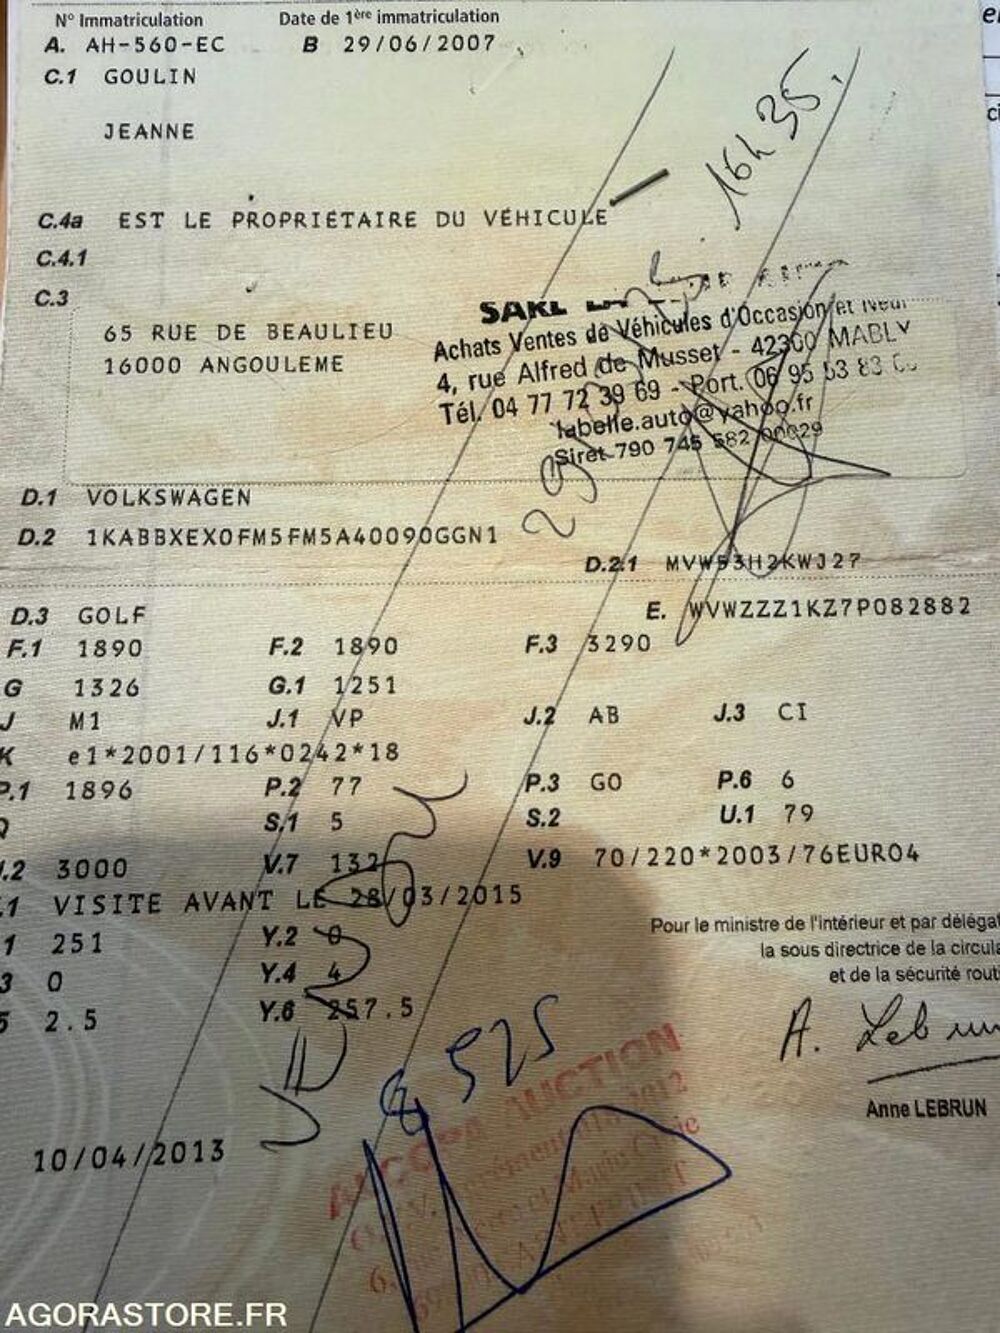 N° Immatriculation Date de 1ère immatriculation
A. AH-560-EC B 29/06/2007
C.1 GOULIN
JEANNE
16h35.
C.4a EST LE PROPRIÉTAIRE DU VÉHICULE
C.4.1
C.3
SARL
65 RUE DE BEAULIEU
16000 ANGOULEME
Achats Ventes de Véhicules d'Occasion et Neuf
4, rue Alfred de Musset - 42300 MABLY
Tél. 04 77 72 39 69 - Port. 06 95 53 83
labelle.auto@yahoo.fr
Siret 790 745 582 00029
D.1 VOLKSWAGEN
D.2 1KABBXEX0FM5FM5A40090GGN1
D.2.1 MVW53H2KWJ27
D.3 GOLF E. WVWZZZ1KZ7P082882
F.1 1890 F.2 1890 F.3 3290
G 1326 G.1 1251
J M1 J.1 VP J.2 AB J.3 CI
K e1*2001/116*0242*18
P.1 1896 P.2 77 P.3 GO P.6 6
Q S.1 5 S.2 U.1 79
.2 3000 V.7 132 V.9 70/220*2003/76EURO4
.1 VISITE AVANT LE 28/03/2015
1 251 Y.2 0
3 0 Y.4 4
5 2.5 Y.6 257.5
Pour le ministre de l'intérieur et par déléga
la sous directrice de la circula
et de la sécurité rout
8525
A. Lebrun
Anne LEBRUN
10/04/2013
AUCTION
AGORASTORE.FR